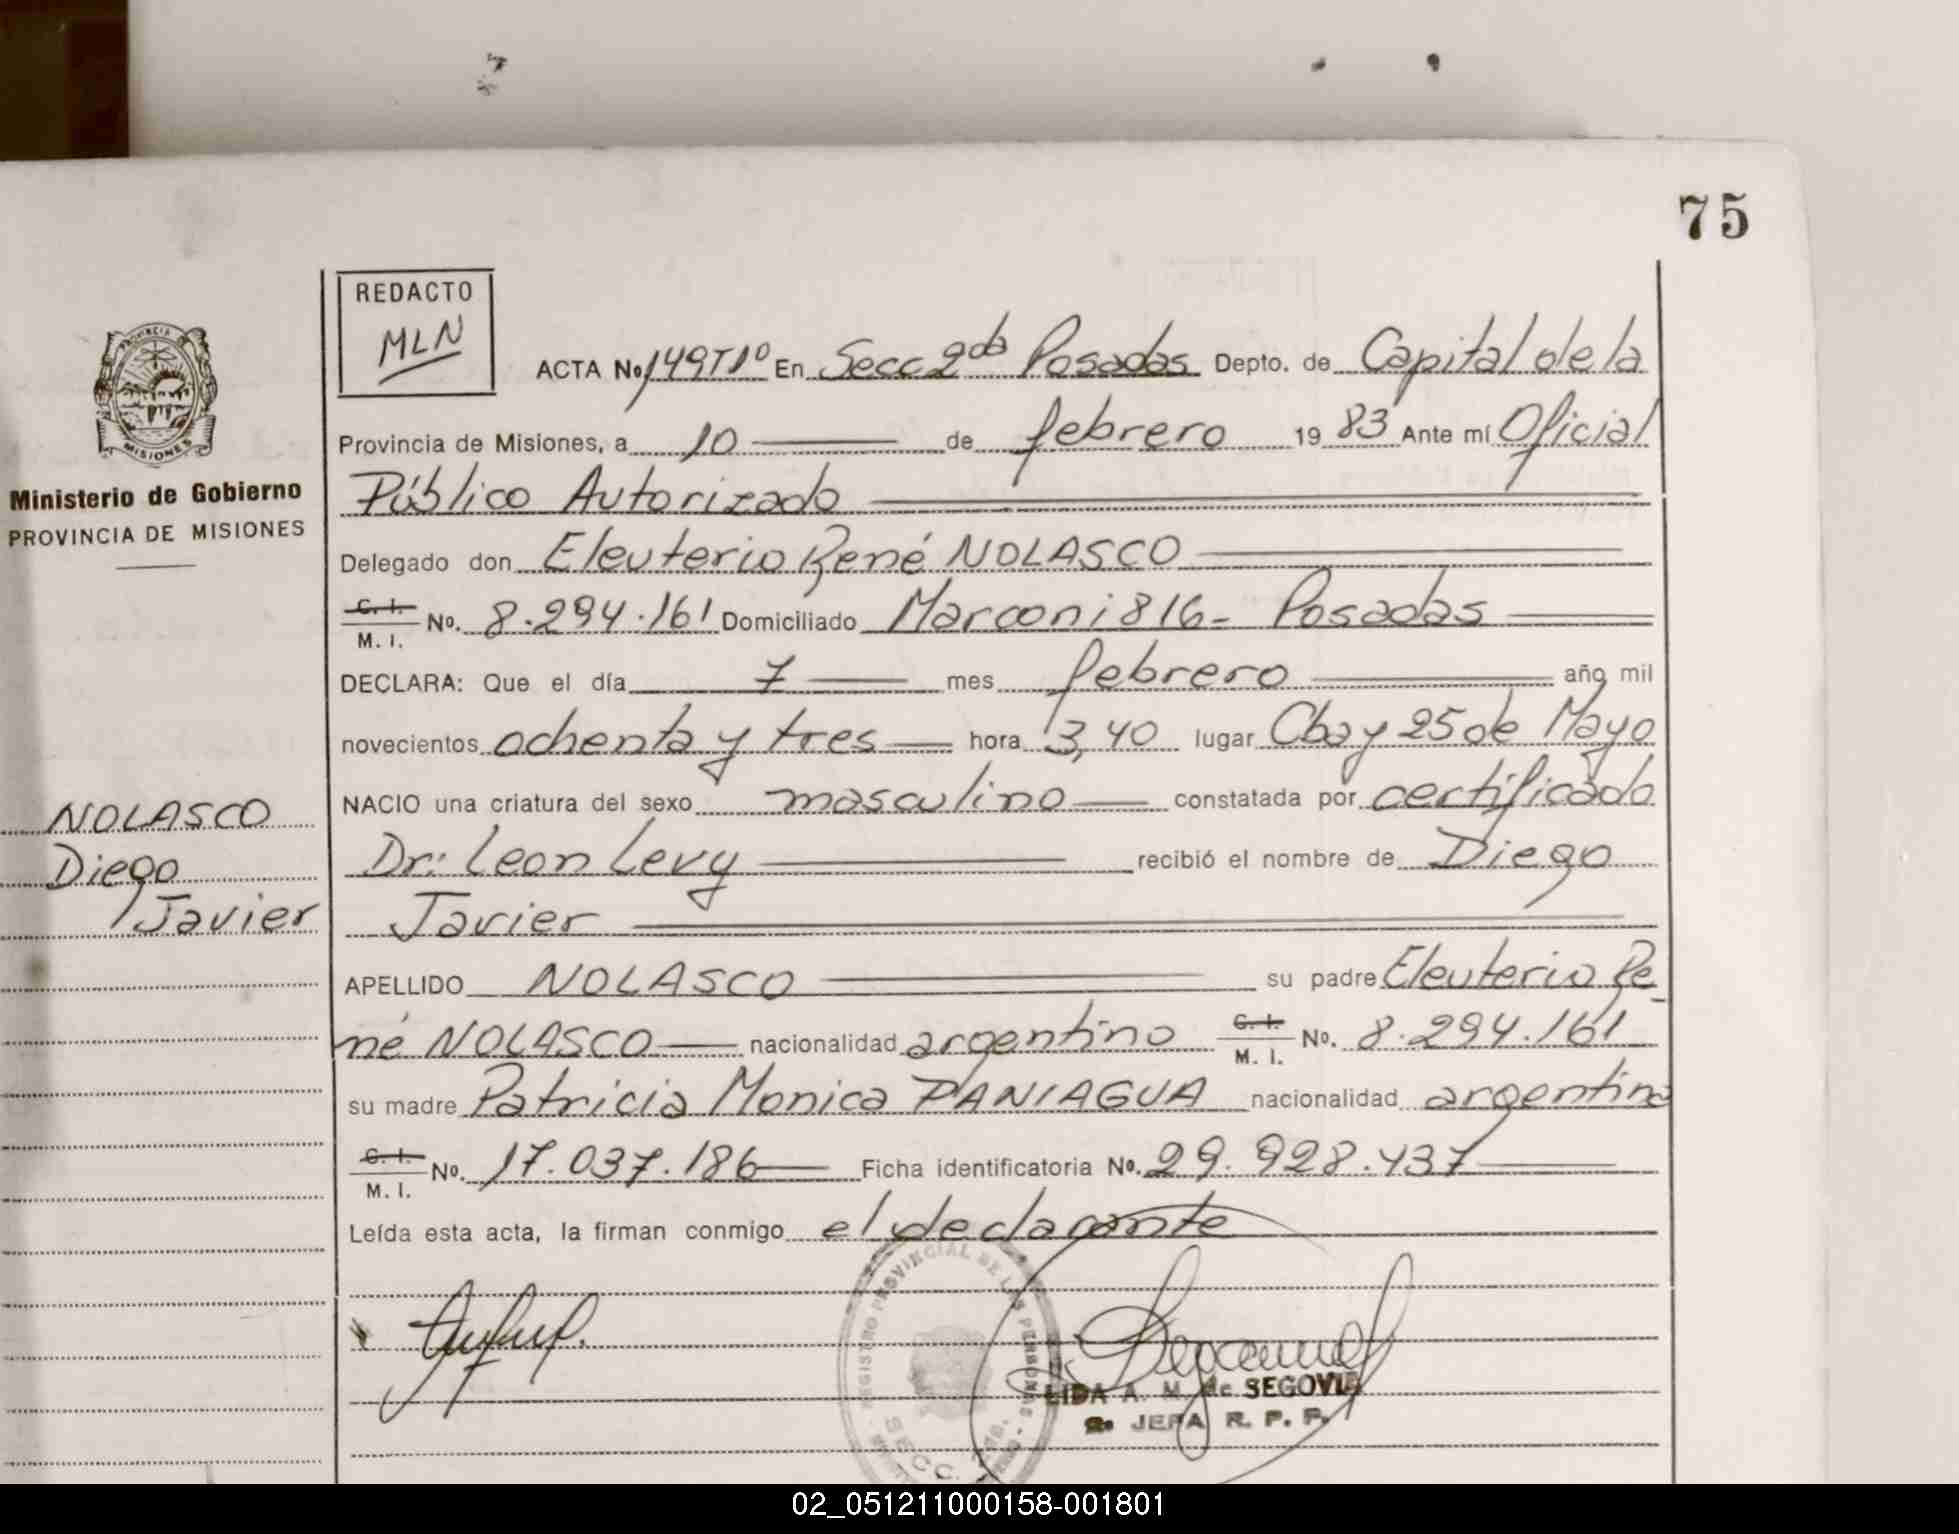 75
REDACTO
MLN
ACTA No. 149T1º En Secc 2da Posadas Depto. de Capital de la
Provincia de Misiones, a 10 de febrero 1983 Ante mí Oficial
Público Autorizado
Delegado don Eleuterio René NOLASCO
C. I. M. I. No. 8.294.161 Domiciliado Marconi 816- Posadas
DECLARA: Que el día 7 mes febrero año mil
novecientos ochenta y tres hora 3,40 lugar Cba y 25 de Mayo
NACIO una criatura del sexo masculino constatada por certificado
Dr: Leon Levy recibió el nombre de Diego
Javier
APELLIDO NOLASCO su padre Eleuterio Re-
né NOLASCO nacionalidad argentino C. I. M. I. No. 8.294.161
su madre Patricia Monica PANIAGUA nacionalidad argentina
C. I. M. I. No. 17.037.186 Ficha identificatoria No. 29.928.437
Leída esta acta, la firman conmigo el declarante
PROVINCIA
MISIONES
Ministerio de Gobierno
PROVINCIA DE MISIONES
NOLASCO
Diego
Javier
REGISTRO PROVINCIAL DE LAS PERSONAS
SECC.
LIDA A. M. de SEGOVIA
JEFA R. P. P.
02_051211000158-001801